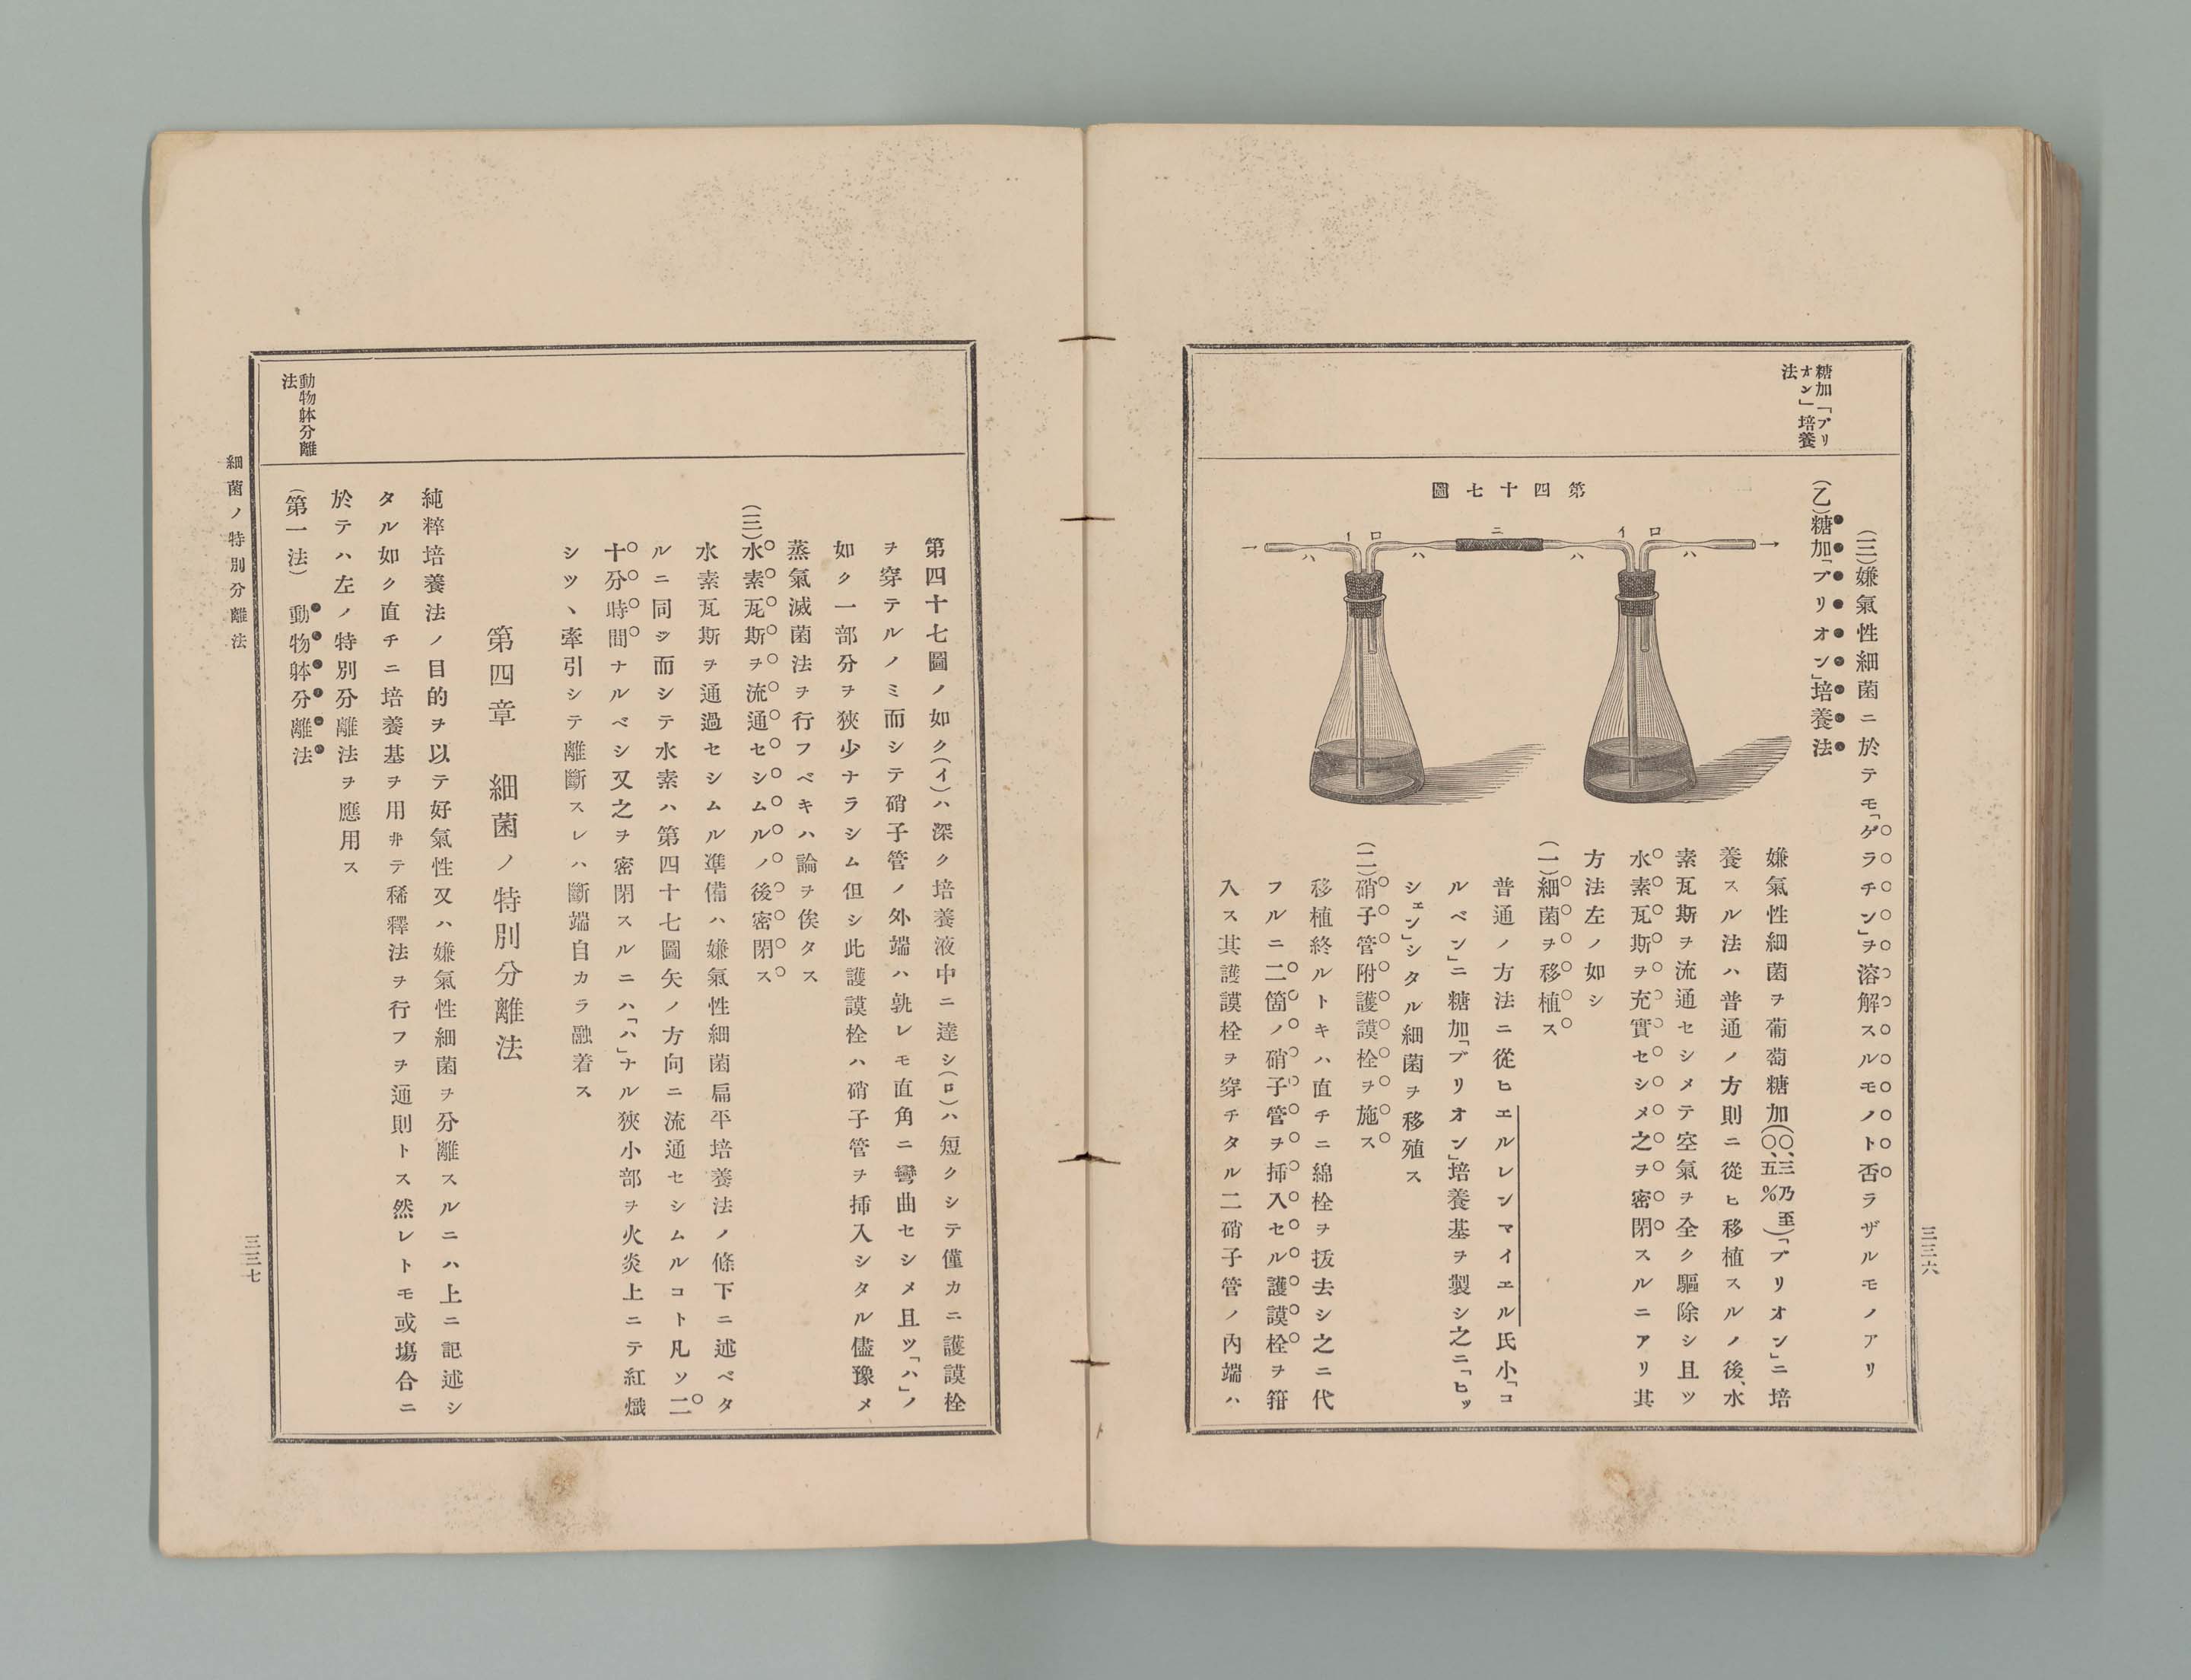 糖加「ブリ
オン」培養
法
(三)嫌氣性細菌ニ於テモ「ゲラチン」ヲ溶解スルモノト否ラザルモノアリ
(乙)糖加「ブリオン」培養法
第四十七圖
イ
ロ
ハ
ニ
ハ
イ
ロ
ハ
嫌氣性細菌ヲ葡萄糖加(〇、三乃至〇、五%)「ブリオン」ニ培
養スル法ハ普通ノ方則ニ從ヒ移植スルノ後、水
素瓦斯ヲ流通セシメテ空氣ヲ全ク驅除シ且ツ
水素瓦斯ヲ充實セシメ之ヲ密閉スルニアリ其
方法左ノ如シ
(一)細菌ヲ移植ス
普通ノ方法ニ從ヒエルレンマイエル氏小「コ
ルベン」ニ糖加「ブリオン」培養基ヲ製シ之ニ「ヒッ
シェン」シタル細菌ヲ移殖ス
(二)硝子管附護謨栓ヲ施ス
移植終ルトキハ直チニ綿栓ヲ抜去シ之ニ代
フルニ二箇ノ硝子管ヲ挿入セル護謨栓ヲ箝
入ス其護謨栓ヲ穿チタル二硝子管ノ內端ハ
三三六
第四十七圖ノ如ク(イ)ハ深ク培養液中ニ達シ(ロ)ハ短クシテ僅カニ護謨栓
ヲ穿テルノミ而シテ硝子管ノ外端ハ孰レモ直角ニ彎曲セシメ且ツ「ハ」ノ
如ク一部分ヲ狹少ナラシム但シ此護謨栓ハ硝子管ヲ挿入シタル儘豫メ
蒸氣滅菌法ヲ行フベキハ論ヲ俟タス
(三)水素瓦斯ヲ流通セシムルノ後密閉ス
水素瓦斯ヲ通過セシムル準備ハ嫌氣性細菌扁平培養法ノ條下ニ述ベタ
ルニ同ジ而シテ水素ハ第四十七圖矢ノ方向ニ流通セシムルコト凡ソ二
十分時間ナルベシ又之ヲ密閉スルニハ「ハ」ナル狹小部ヲ火炎上ニテ紅熾
シツヽ牽引シテ離斷スレハ斷端自カラ融着ス
第四章　細菌ノ特別分離法
純粹培養法ノ目的ヲ以テ好氣性又ハ嫌氣性細菌ヲ分離スルニハ上ニ記述シ
タル如ク直チニ培養基ヲ用ヰテ稀釋法ヲ行フヲ通則トス然レトモ或塲合ニ
於テハ左ノ特別分離法ヲ應用ス
(第一法)　動物躰分離法
動物躰分離
法
細菌ノ特別分離法
三三七